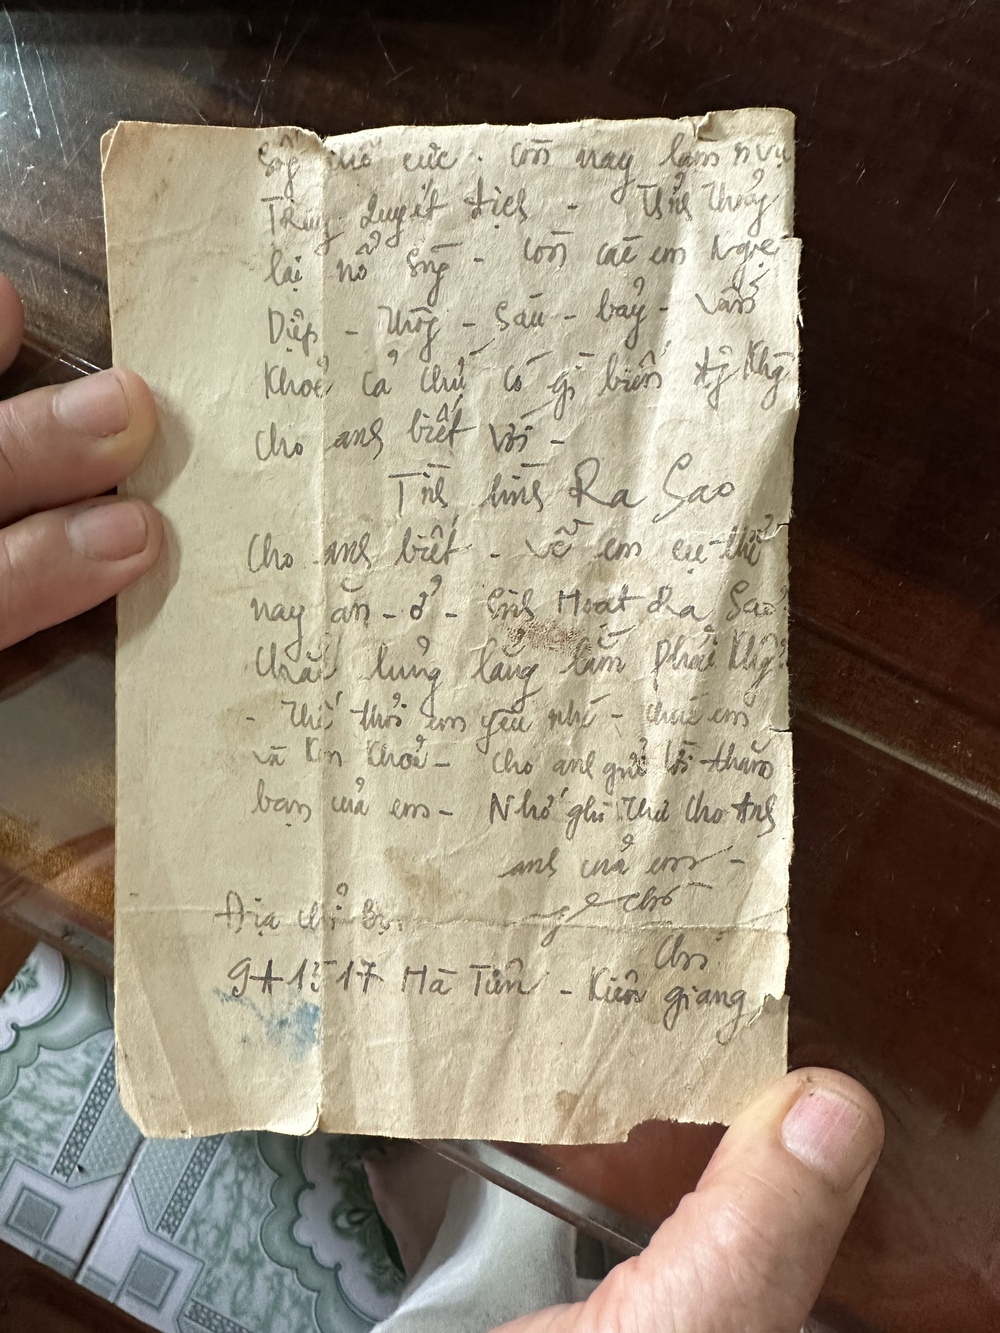 cực. Còn nay làm n.vụ
Trung Quyết địch - Tỉnh Thoảng
lại nổ Súng - Còn các em Ngọc
Diệp - Thông - Sáu - bảy - Vẫn
Khoẻ cả chứ có gì biến đg Khg
cho anh biết với -
Tình hình Ra Sao
Cho anh biết - về em cụ thể
nay ăn - ở - Sinh Hoạt Ra Sao?
Chắc lung lắng lắm phải Khg?
- Thế thôi em yêu nhé - chúc em
và Khoẻ - Cho anh gửi lời thăm
bạn của em - Nhớ ghi Thư Cho Anh
anh của em -
Địa chỉ
9A 1517 Hà Tiên - Kiên giang